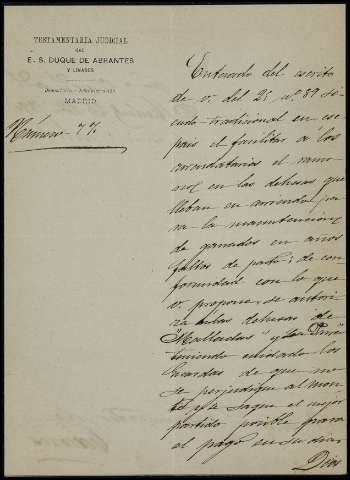 TESTAMENTARÍA JUDICIAL
DEL
E. S. DUQUE DE ABRANTES
Y LINARES
MADRID
Número 77
Enterado del escrito
de v. del 25 nº 89 si
endo tradicional en ese
pais el facilitar á los
arrendatarios el ramo
en las dehesas que
lleban en arriendo pa
ra la manutencion
de ganados en años
faltos de pasto; de con
formidad con lo que
v. propone, se autori
za las dehesas de
"Malladas" y
teniendo cuidado los
Guardas de que no
se perjudique al mon
te y se saque el mejor
partido posible para
el pago en su dia
Dios